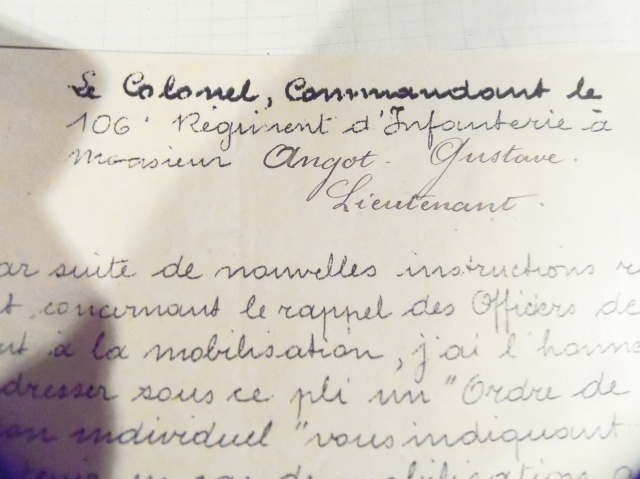 Le Colonel, Commandant le
106e Régiment d'Infanterie à
Monsieur Angot. Gustave.
Lieutenant.
ar suite de nouvelles instructions r
t concernant le rappel des Officiers de
nt à la mobilisation, j'ai l'honne
dresser sous ce pli un "Ordre de
ion individuel "vous indiquant
en cas de mobilisation,